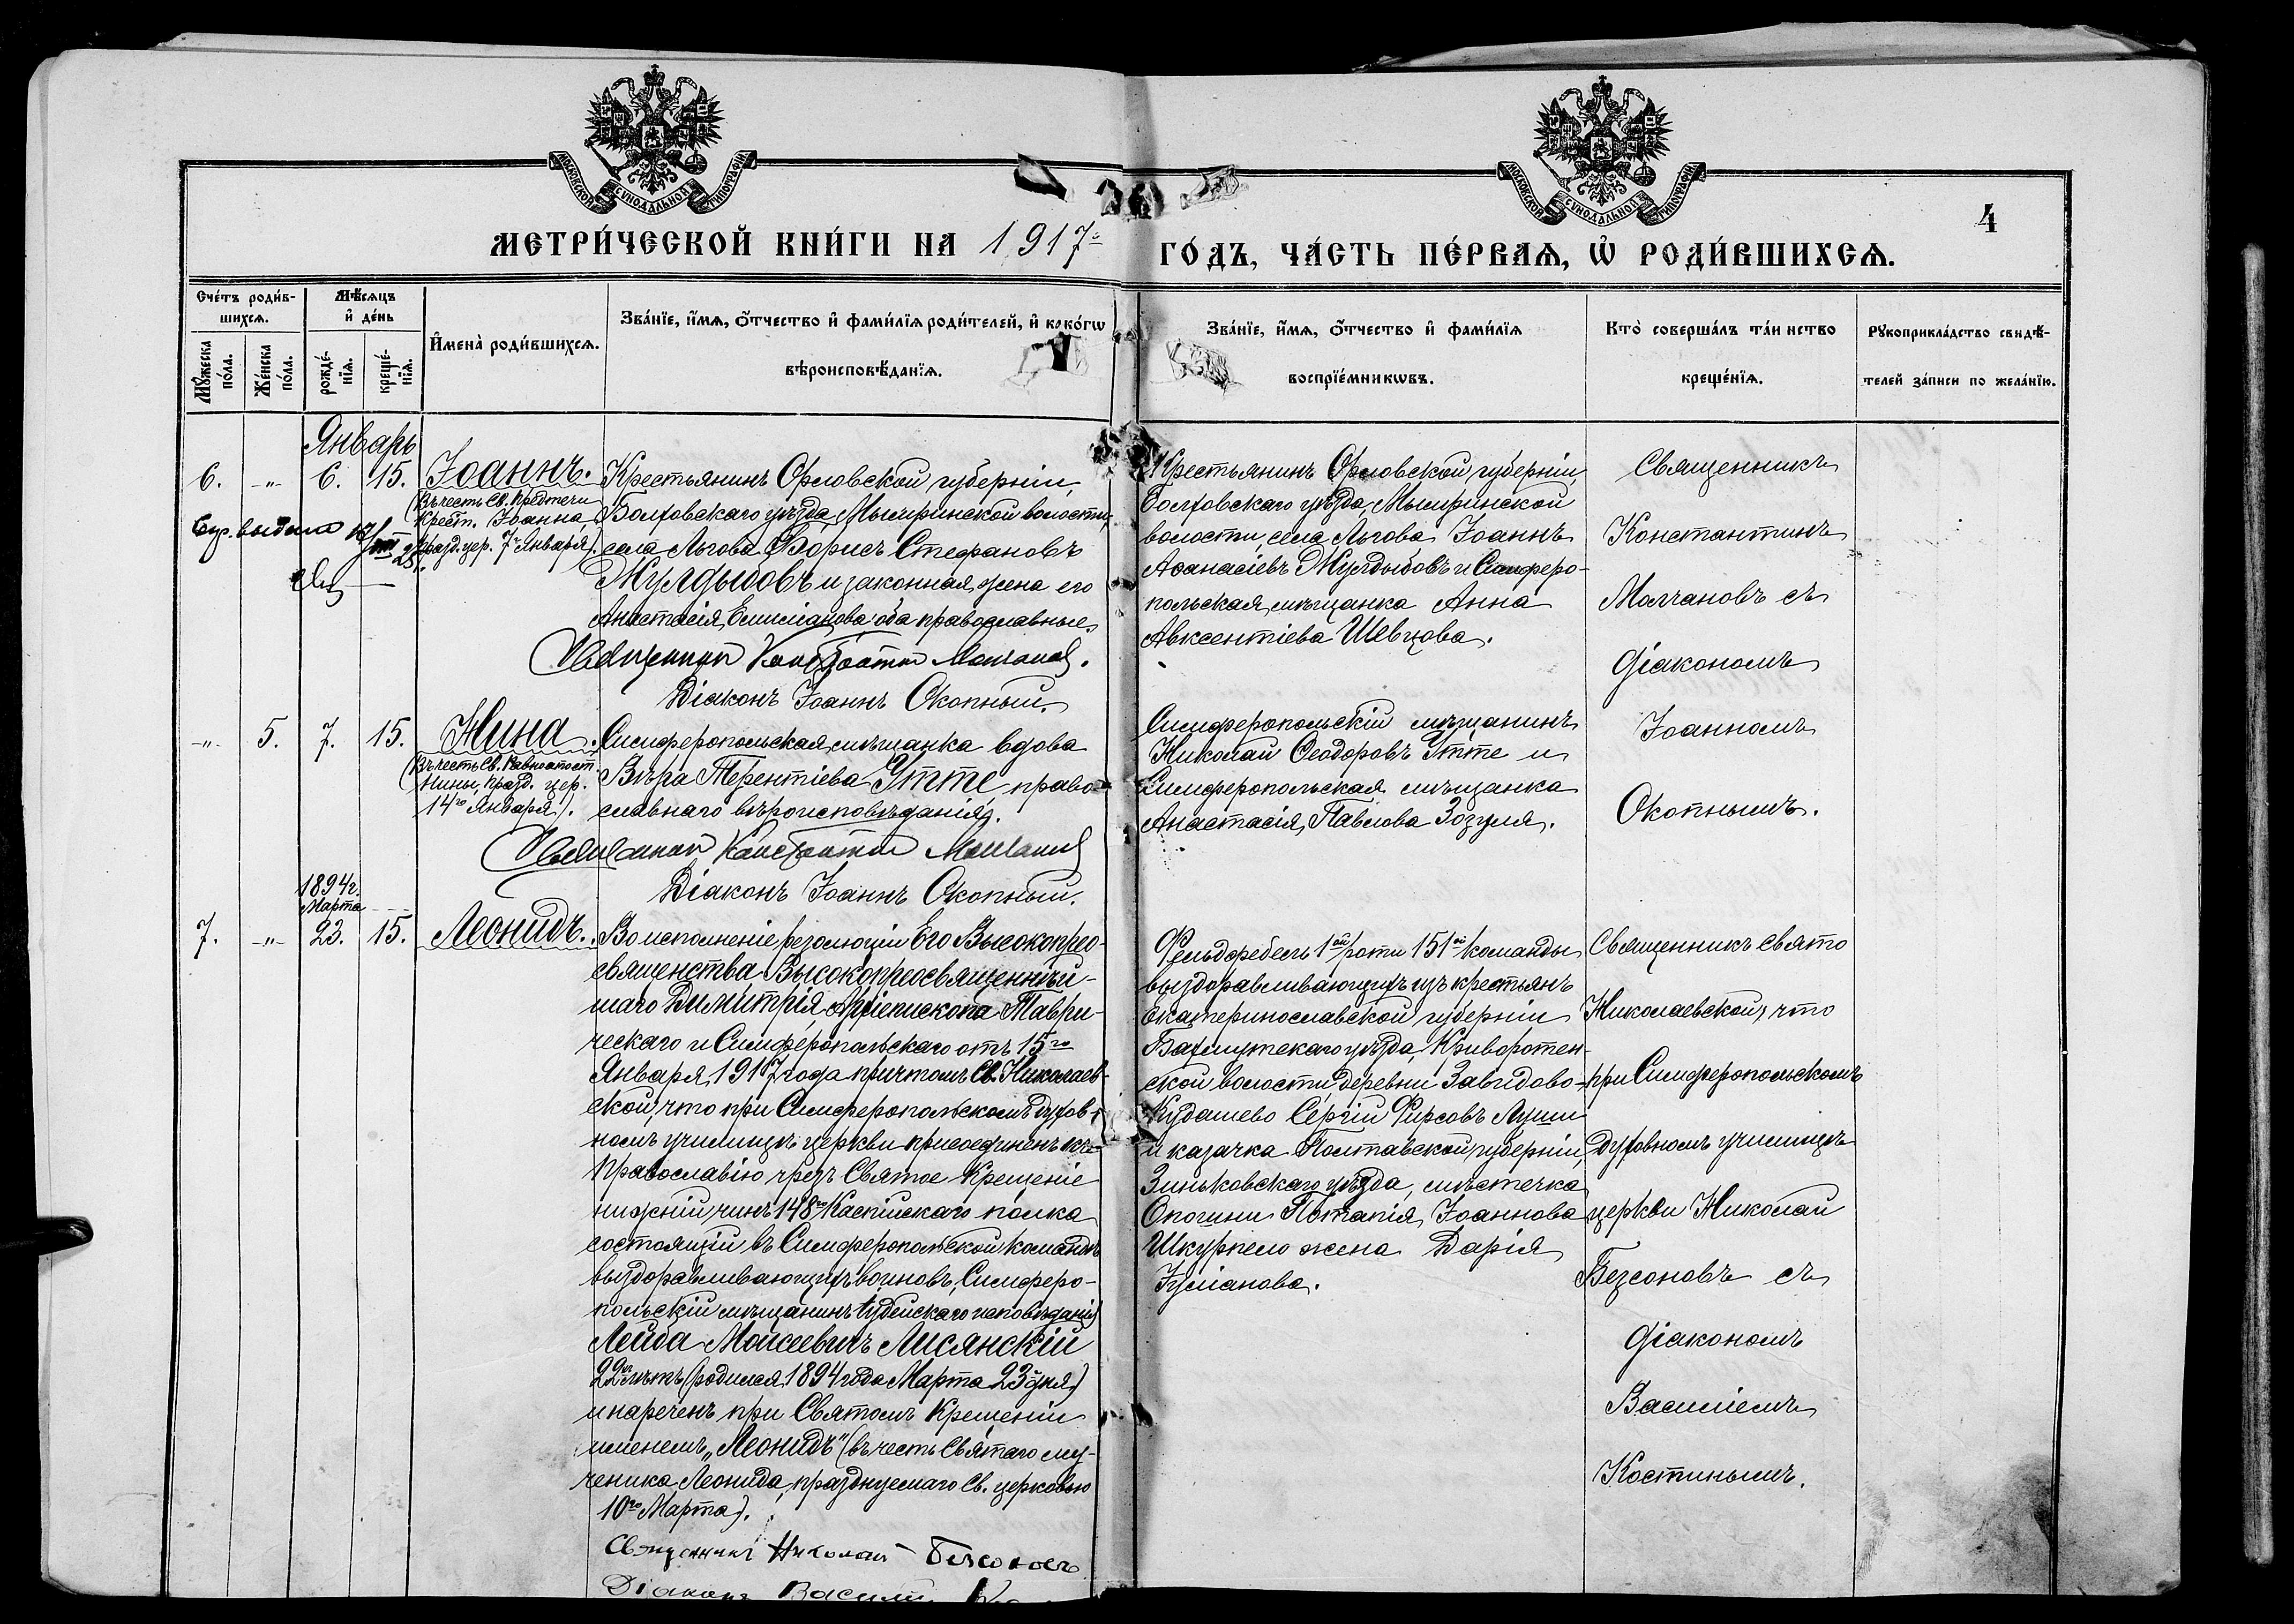 МОСКОВСКОЙ СУНОДАЛЬНОЙ ТИПОГРАФІИ
МОСКОВСКОЙ СУНОДАЛЬНОЙ ТИПОГРАФІИ
4
МЕТРИ́ЧЕСКОЙ КНИ́ГИ НА 1917й
ГО́ДЪ, ЧА́СТЬ ПЕ́РВАѦ, Ѡ҆ РОДИ́ВШИХСѦ.
Сче́тъ роди́в-
шихсѧ.
Мѣ́сѧцъ
и҆ де́нь
И҆мена̀ роди́вшихсѧ.
Зва́нїе, и҆́мѧ, ѻ҆́тчество и҆ фами́лїѧ роди́телей, и҆ како́гѡ
вѣроисповѣ́данїѧ.
Мꙋ́жеска
по́ла.
Же́нска
по́ла.
рожде́-
нїѧ.
креще́-
нїѧ.
Зва́нїе, и҆́мѧ, ѻ҆́тчество и҆ фами́лїѧ
воспрїе́мникѡвъ.
Кто̀ соверша́лъ та́инство
креще́нїѧ.
Рꙋкоприкла́дство свидѣ́-
телей за́писи по жела́нїю.
Январь
6. -"- 6. 15. Іоаннъ.
(Въ честь Св. Предтечи
Крест. Іоанна,
празд. цер. 7го Января).
Крестьянинъ Орловской губерніи,
Болховскаго уѣзда, Мымринской волости,
села Льгова Борисъ Стефановъ
Жулдыбовъ и законная жена его
Анастасія Емиліанова оба православные.
Священник Константин Молчанов.
Діаконъ Іоаннъ Окопный.
Крестьянинъ Орловской губерніи,
Болховскаго уѣзда, Мымринской
волости, села Льгова Іоаннъ
Аѳанасіевъ Жулдыбовъ и Симферо-
польская мѣщанка Анна
Авксентіева Шевцова.
Священникъ
Константинъ
Молчановъ съ
діакономъ
Іоанномъ
Окопнымъ.
-"- 5. 7. 15. Нина.
(Въ честь Св. Равноапост.
Нины, празд. цер.
14го Января).
Симферопольская мѣщанка вдова
Вѣра Терентіева Утте, право-
славнаго вѣроисповѣданія.
Священник Константин Молчанов
Діаконъ Іоаннъ Окопный.
Симферопольскій мѣщанинъ
Николай Ѳеодоровъ Утте и
Симферопольская мѣщанка
Анастасія Павлова Зозуля.
1894г.
Марта
7. -"- 23. 15. Леонидъ.
Во исполненіе резолюціи Его Высокопрео-
священства, Высокопреосвященнѣй-
шаго Димитрія, Архіепископа Таври-
ческаго и Симферопольскаго отъ 15го
Января 1917 года причтомъ Св. Николаев-
ской, что при Симферопольскомъ духов-
номъ училищѣ церкви присоединенъ къ
Православію чрезъ Святое Крещеніе
нижній чинъ 148го Каспійскаго полка
состоящій въ Симферопольской командѣ
выздоравливающихъ воиновъ, Симферо-
польскій мѣщанинъ іудейскаго исповѣданія
Лейба Мойсеевичъ Лисянскій
22хъ лѣтъ (родился 1894 года Марта 23го дня)
и нареченъ при Святомъ Крещеніи
именемъ „Леонидъ" (въ честь Святаго му-
ченика Леонида, празднуемаго Св. церковью
10го Марта).
Священникъ Николай Безсоновъ
Діаконъ Василій
Фельдфебель 1ой роты 151ой команды
выздоравливающихъ изъ крестьянъ
Екатеринославской губерніи
Бахмутскаго уѣзда,
ской волости, деревни Завидово-
Кудашево Сергій Фирсовъ
и казачка Полтавской губерніи,
Зиньковскаго уѣзда, мѣстечка
Опошни Потапія Іоаннова
жена Дарія
Священникъ Свято
Николаевской, что
при Симферопольскомъ
духовномъ училищѣ
церкви Николай
Безсоновъ съ
діакономъ
Василіемъ
Костинымъ.